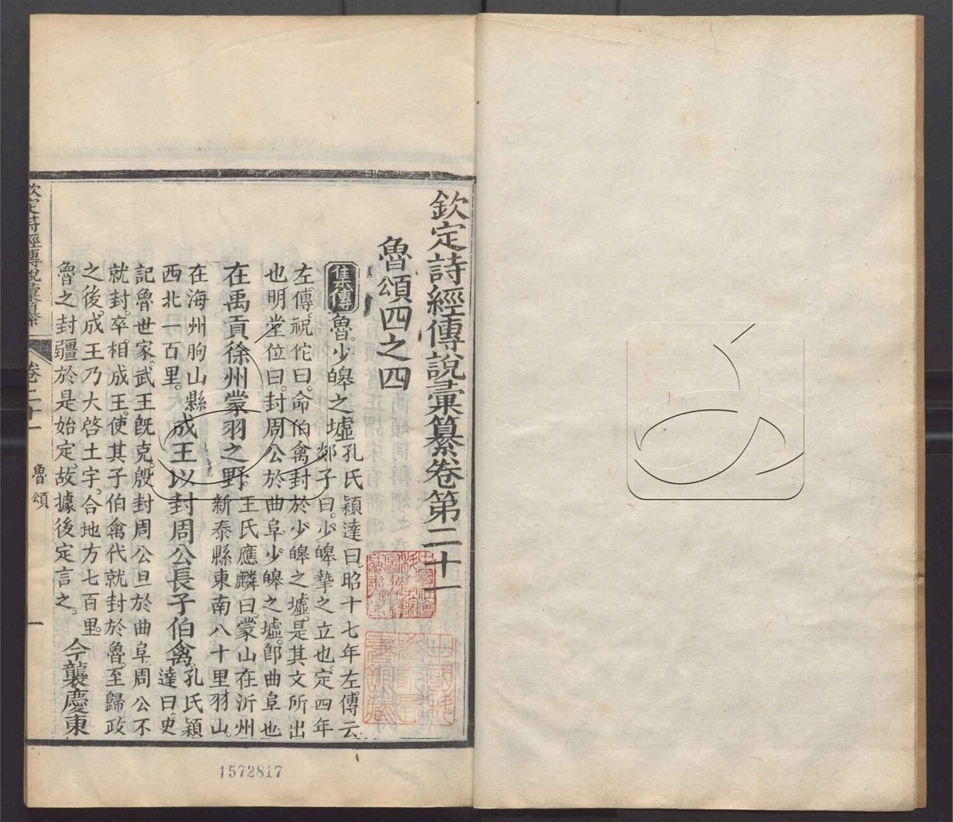 欽定詩經傳說彙纂卷第二十一
魯頌四之四
集傳魯少皞之墟孔氏穎達曰昭十七年左傳云
郯子曰少皞摯之立也定四年
左傳祝佗曰命伯禽封於少皞之墟是其文所出
也明堂位曰封周公於曲阜少皞之墟即曲阜也
在禹貢徐州蒙羽之野王氏應麟曰蒙山在沂州
新泰縣東南八十里羽山
在海州朐山縣
西北一百里成王以封周公長子伯禽孔氏穎
達曰史
記魯世家武王既克殷封周公旦於曲阜周公不
就封卒相成王使其子伯禽代就封於魯至歸政
之後成王乃大啓土宇合地方七百里
魯之封疆於是始定故據後定言之今襲慶東
欽定詩經傳說彙纂 卷二十一 魯頌 一
1572817